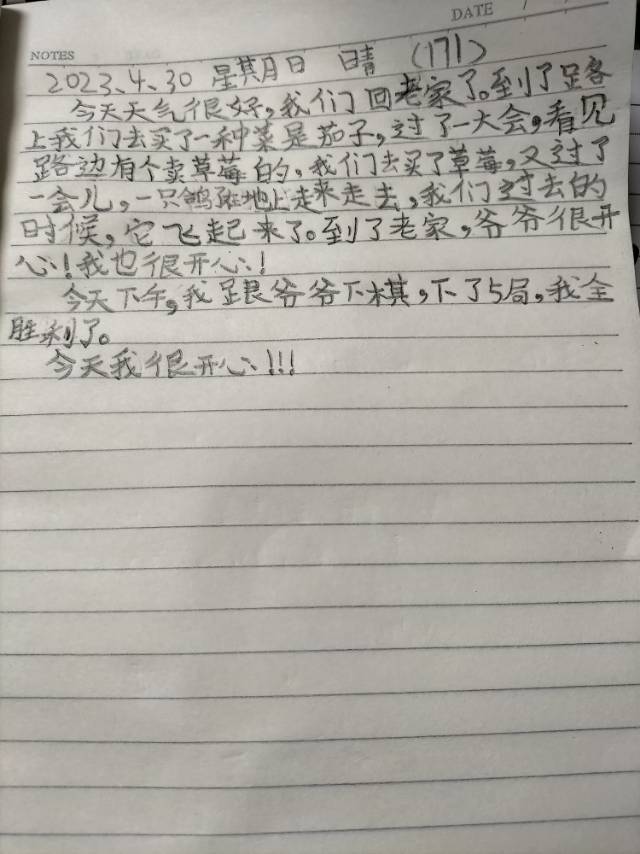 DATE
NOTES
2023.4.30 星期日 晴 (171)
今天天气很好,我们回老家了。到了足客
上我们去买了一种菜是茄子,过了一大会,看见
路边有个卖草莓的,我们去买了草莓,又过了
一会儿,一只鸽在地上走来走去,我们过去的
时候,它飞起来了。到了老家,爷爷很开
心!我也很开心!
今天下午,我跟爷爷下棋,下了5局,我全
胜利了。
今天我很开心!!!